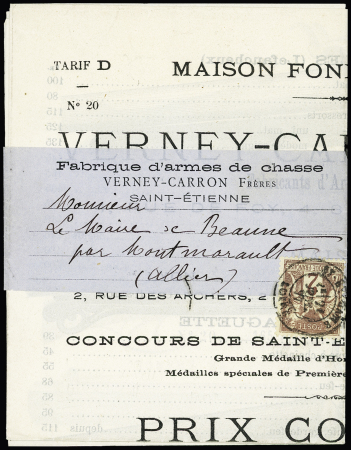 TARIF D
MAISON FON
No 20
VERNEY-CA
Fabrique d'armes de chasse
VERNEY-CARRON FRÈRES
SAINT-ÉTIENNE
Monsieur
Le Maire de Beaune
par Montmarault
(Allier)
2, RUE DES ARCHERS, 2
CONCOURS DE SAINT-E
Grande Médaille d'Hon
Médailles spéciales de Première
PRIX CO